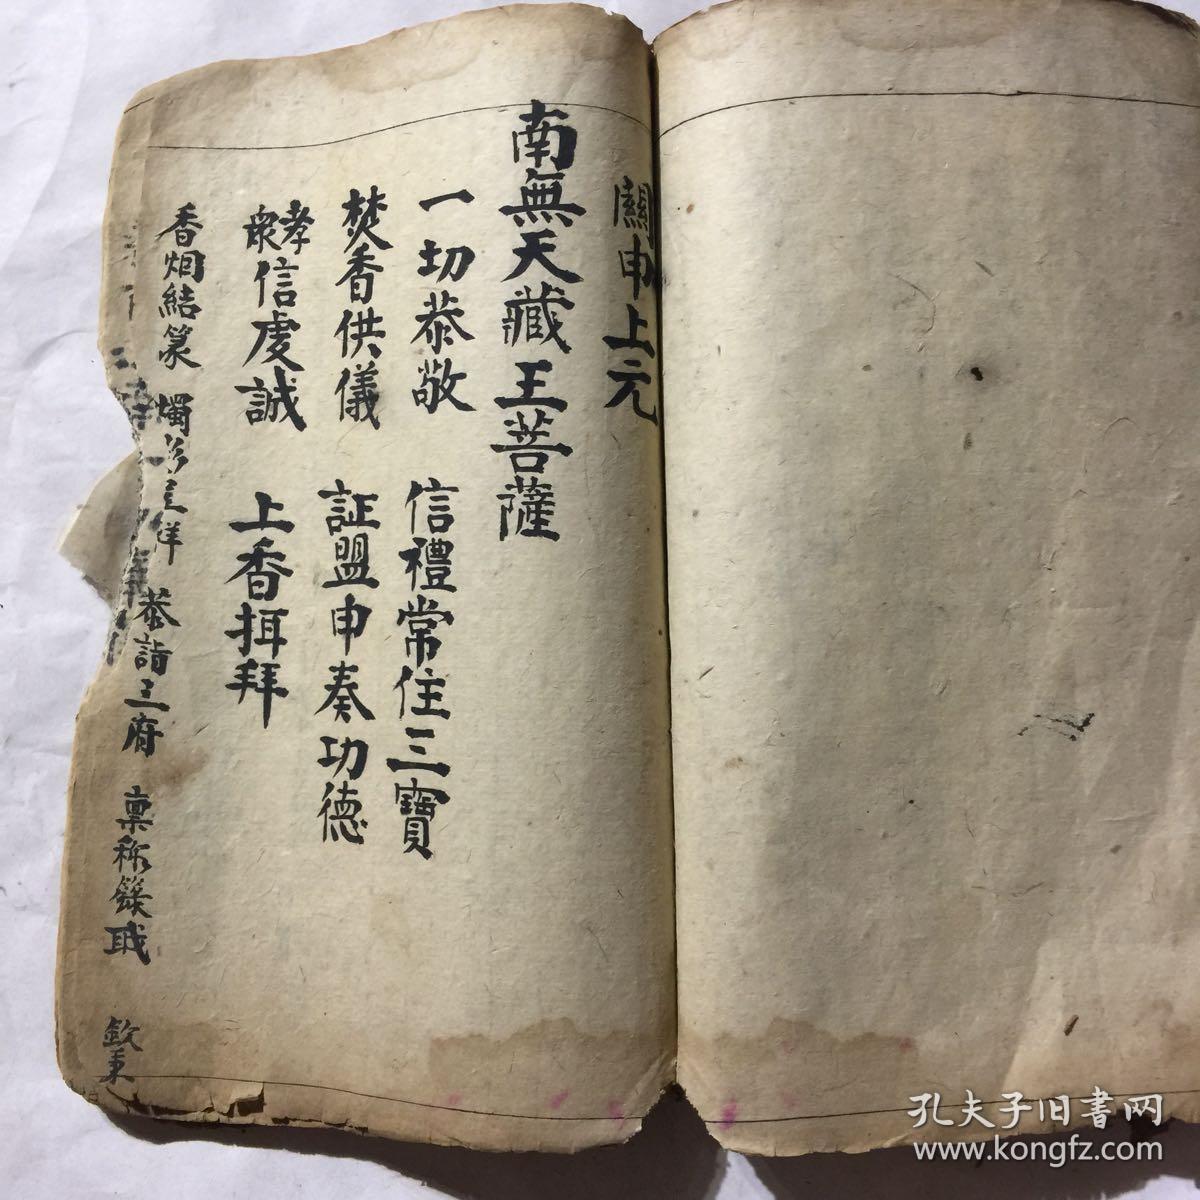 關申上元
南無天藏王菩薩
一切恭敬 信禮常住三寶
焚香供儀 証盟申奏功德
孝衆信虔誠 上香拜
香烟結篆 燭 祥 恭詣三府 禀称籙職 欽奉
孔夫子旧書网
www.kongfz.com